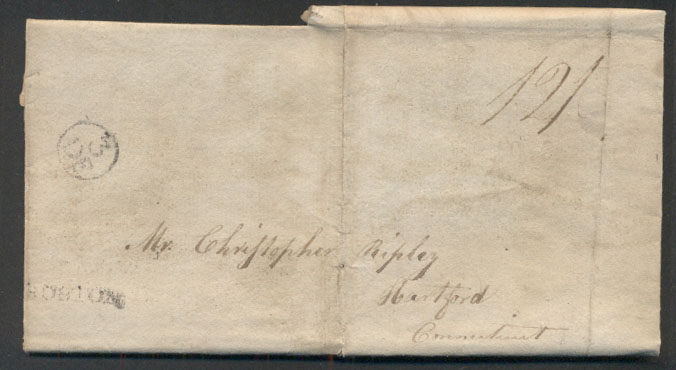 12/
Mr. Christopher Ripley
Hartford
Connecticut
BOSTON